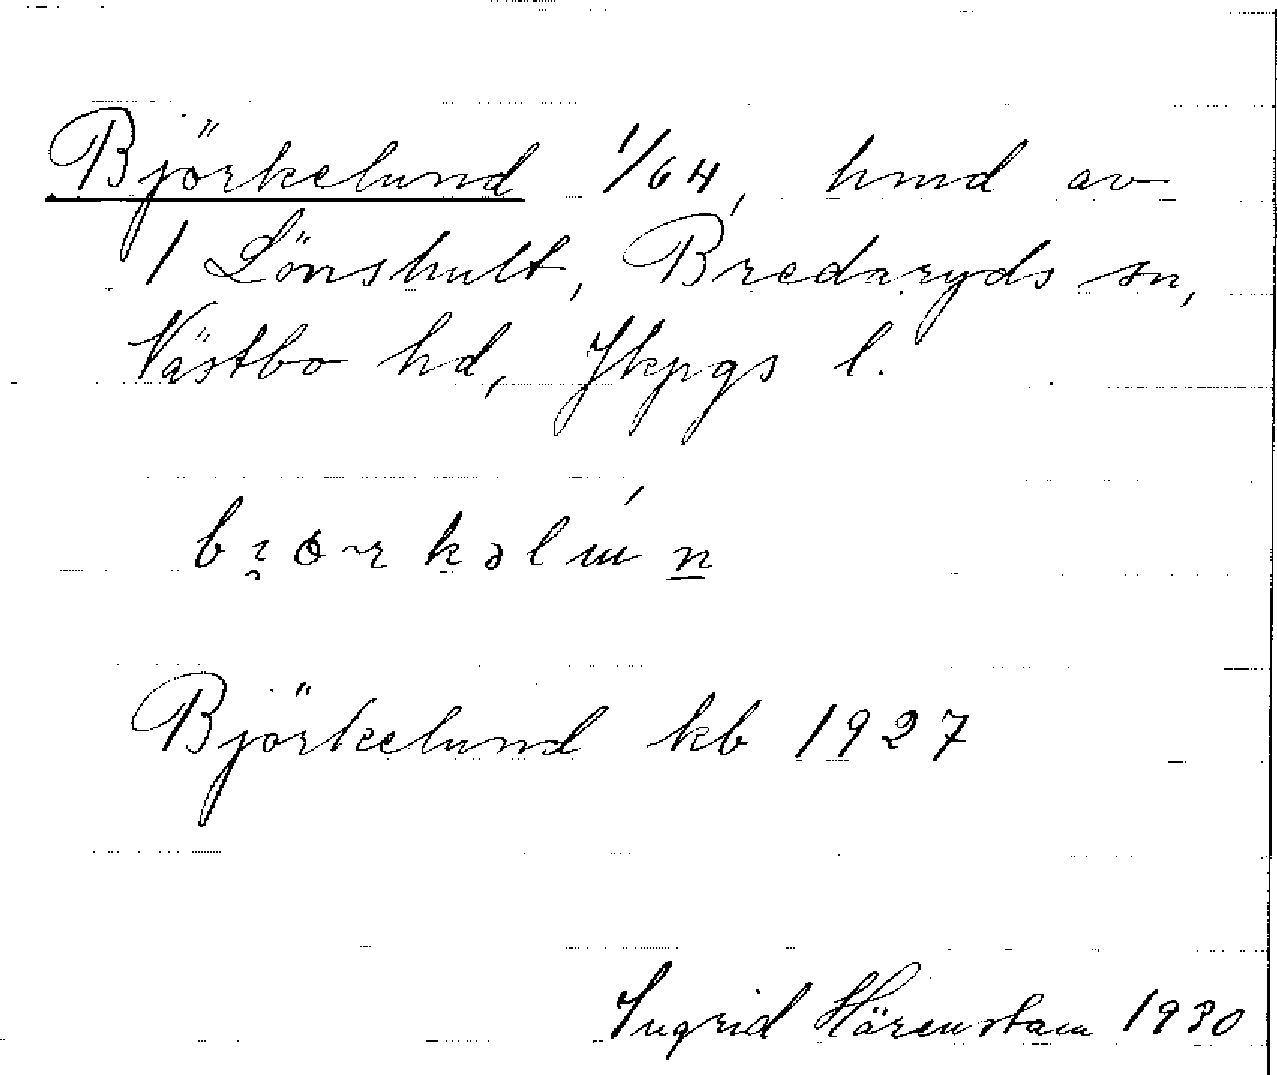 Björkelund 1/64, hmd av
1 Lönshult, Bredaryds sn,
Västbo hd, Jkpgs l.
Björkelund kb 1927
Ingrid Härenstam 1930